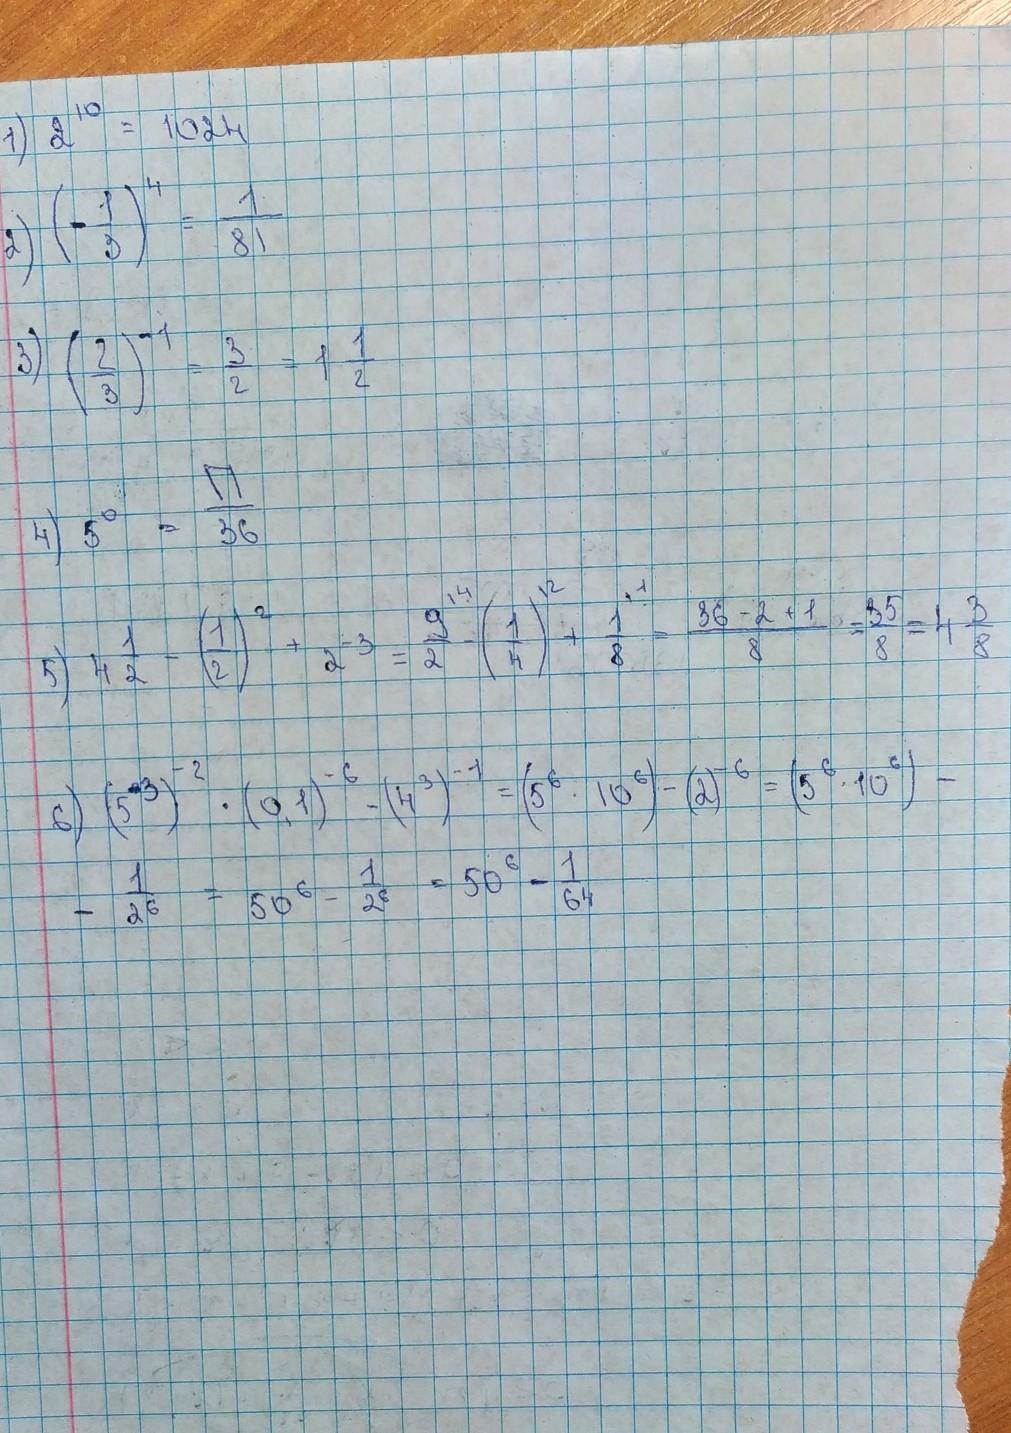 1) 2^10 = 1024
2) (-1/3)^4 = 1/81
3) (2/3)^-1 = 3/2 = 1 1/2
4) 5^0 = П/36
5) 4 1/2 - (1/2)^2 + 2^-3 = 9/2^\4 - (1/4)^\2 + 1/8^\1 = (36 - 2 + 1)/8 = 35/8 = 4 3/8
6) (5^-3)^-2 · (0,1)^-6 - (4^3)^-1 = (5^6 · 10^6) - (2)^-6 = (5^6 · 10^6) -
- 1/2^6 = 50^6 - 1/2^6 = 50^6 - 1/64